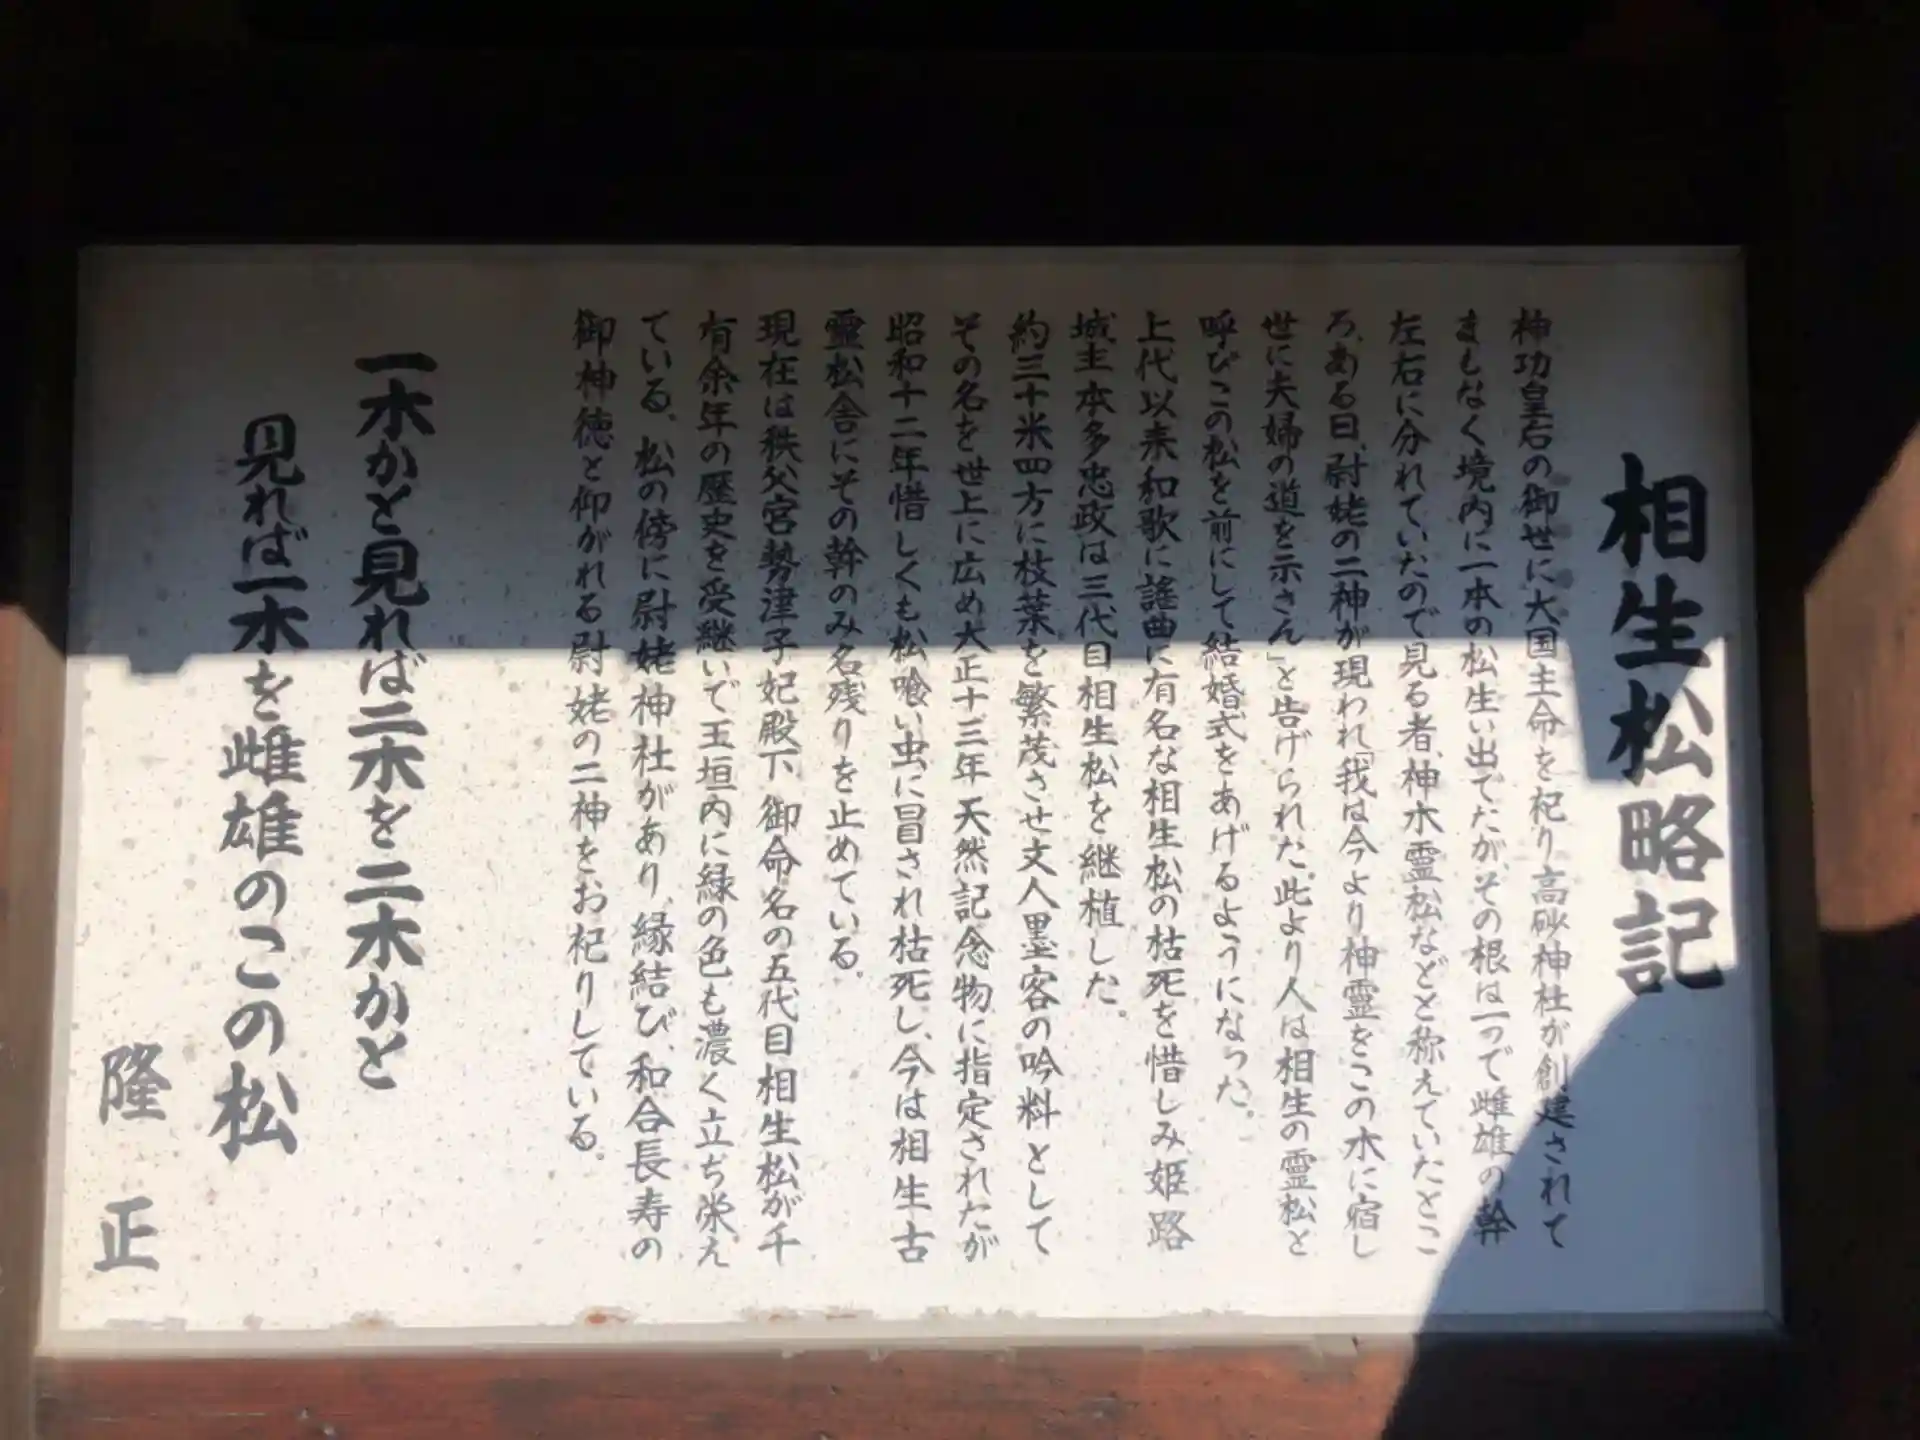 相生松略記
神功皇后の御世に大国主命を祀り高砂神社が創建されて
まもなく境内に一本の松生い出でたが、その根は一つで雌雄の幹
左右に分れていたので見る者、神木霊松などと称えていたとこ
ろ、ある日、尉姥の二神が現われ「我は今より神霊をこの木に宿し
世に夫婦の道を示さん」と告げられた。此より人は相生の霊松と
呼びこの松を前にして結婚式をあげるようになった。
上代以来和歌に謡曲に有名な相生松の枯死を惜しみ姫路
城主本多忠政は三代目相生松を継植した。
約三十米四方に枝葉を繁茂させ文人墨客の吟料として
その名を世上に広め大正十三年天然記念物に指定されたが
昭和十二年惜しくも松喰い虫に冒され枯死し、今は相生古
霊松舎にその幹のみ名残りを止めている。
現在は秩父宮勢津子妃殿下、御命名の五代目相生松が千
有余年の歴史を受継いで玉垣内に緑の色も濃く立ち栄え
ている。松の傍に尉姥神社があり、縁結び、和合長寿の
御神徳と仰がれる尉姥の二神をお祀りしている。
一木かと見れば二木を二木かと
見れば一木を雌雄のこの松
隆正